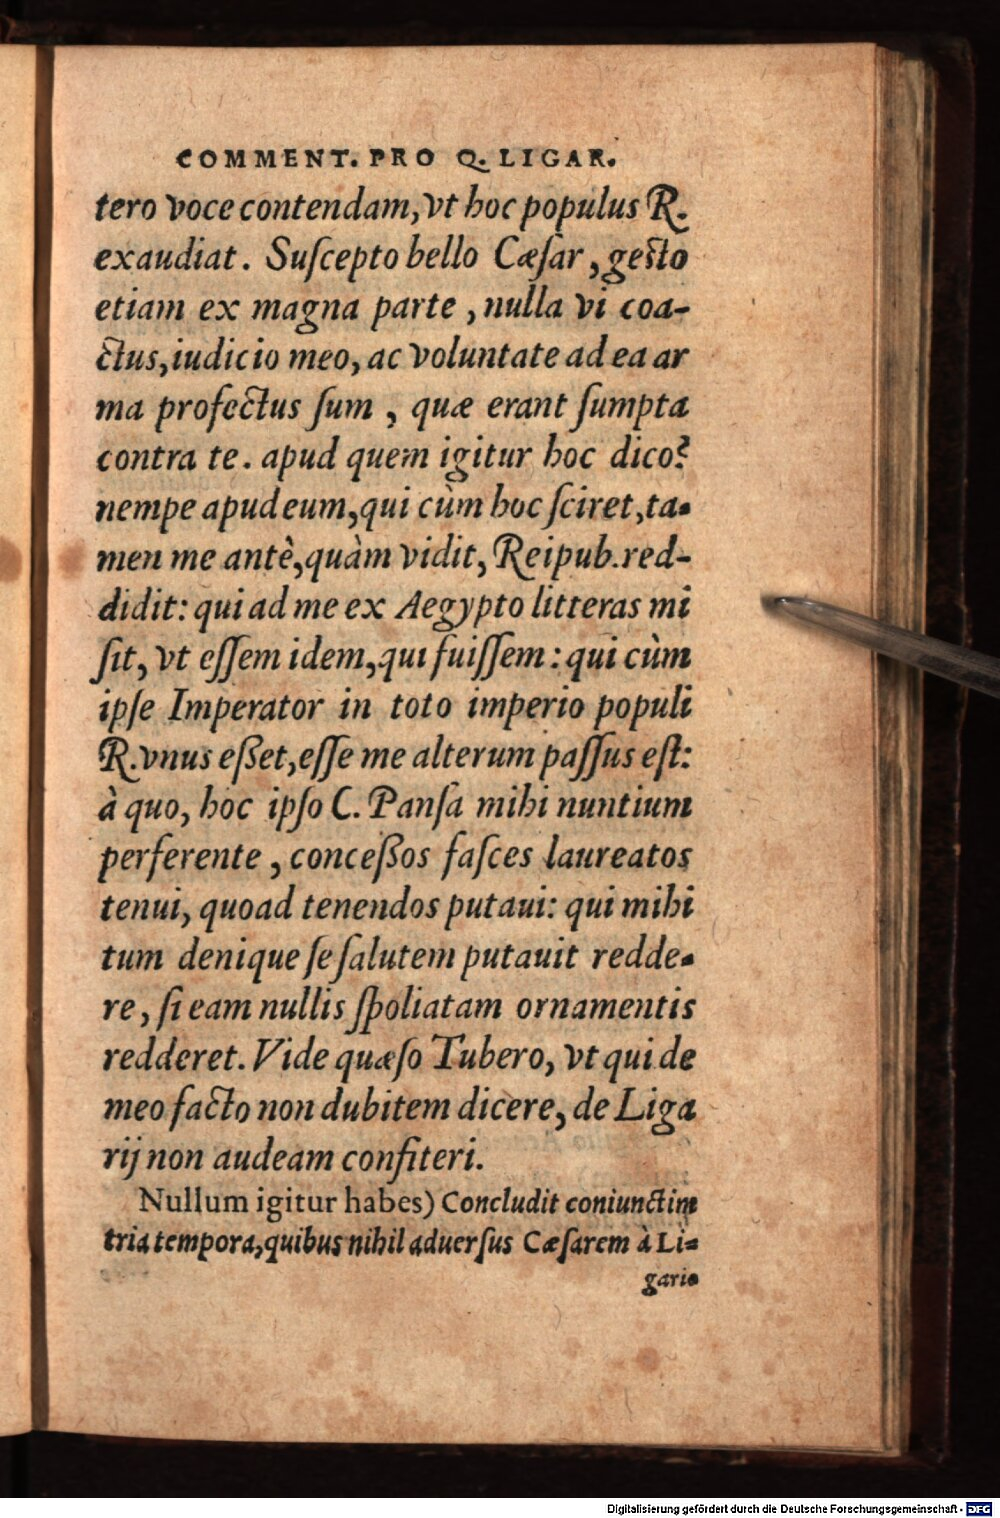 COMMENT. PRO Q. LIGAR.
tero voce contendam, vt hoc populus R.
exaudiat. Suſcepto bello Cæſar, geſto
etiam ex magna parte, nulla vi coa-
ctus, iudicio meo, ac voluntate ad ea ar
ma profectus ſum, quæ erant ſumpta
contra te. apud quem igitur hoc dico?
nempe apud eum, qui cùm hoc ſciret, ta-
men me antè, quàm vidit, Reipub. red-
didit: qui ad me ex Aegypto litteras mi
ſit, vt eſſem idem, qui fuiſſem: qui cùm
ipſe Imperator in toto imperio populi
R. vnus eßet, eſſe me alterum paſſus eſt:
à quo, hoc ipſo C. Panſa mihi nuntium
perferente, conceßos faſces laureatos
tenui, quoad tenendos putaui: qui mihi
tum denique ſe ſalutem putauit redde-
re, ſi eam nullis ſpoliatam ornamentis
redderet. Vide quæſo Tubero, vt qui de
meo facto non dubitem dicere, de Liga
rij non audeam confiteri.
Nullum igitur habes) Concludit coniunctim
tria tempora, quibus nihil aduerſus Cæſarem à Li-
gario
Digitalisierung gefördert durch die Deutsche Forschungsgemeinschaft - DFG